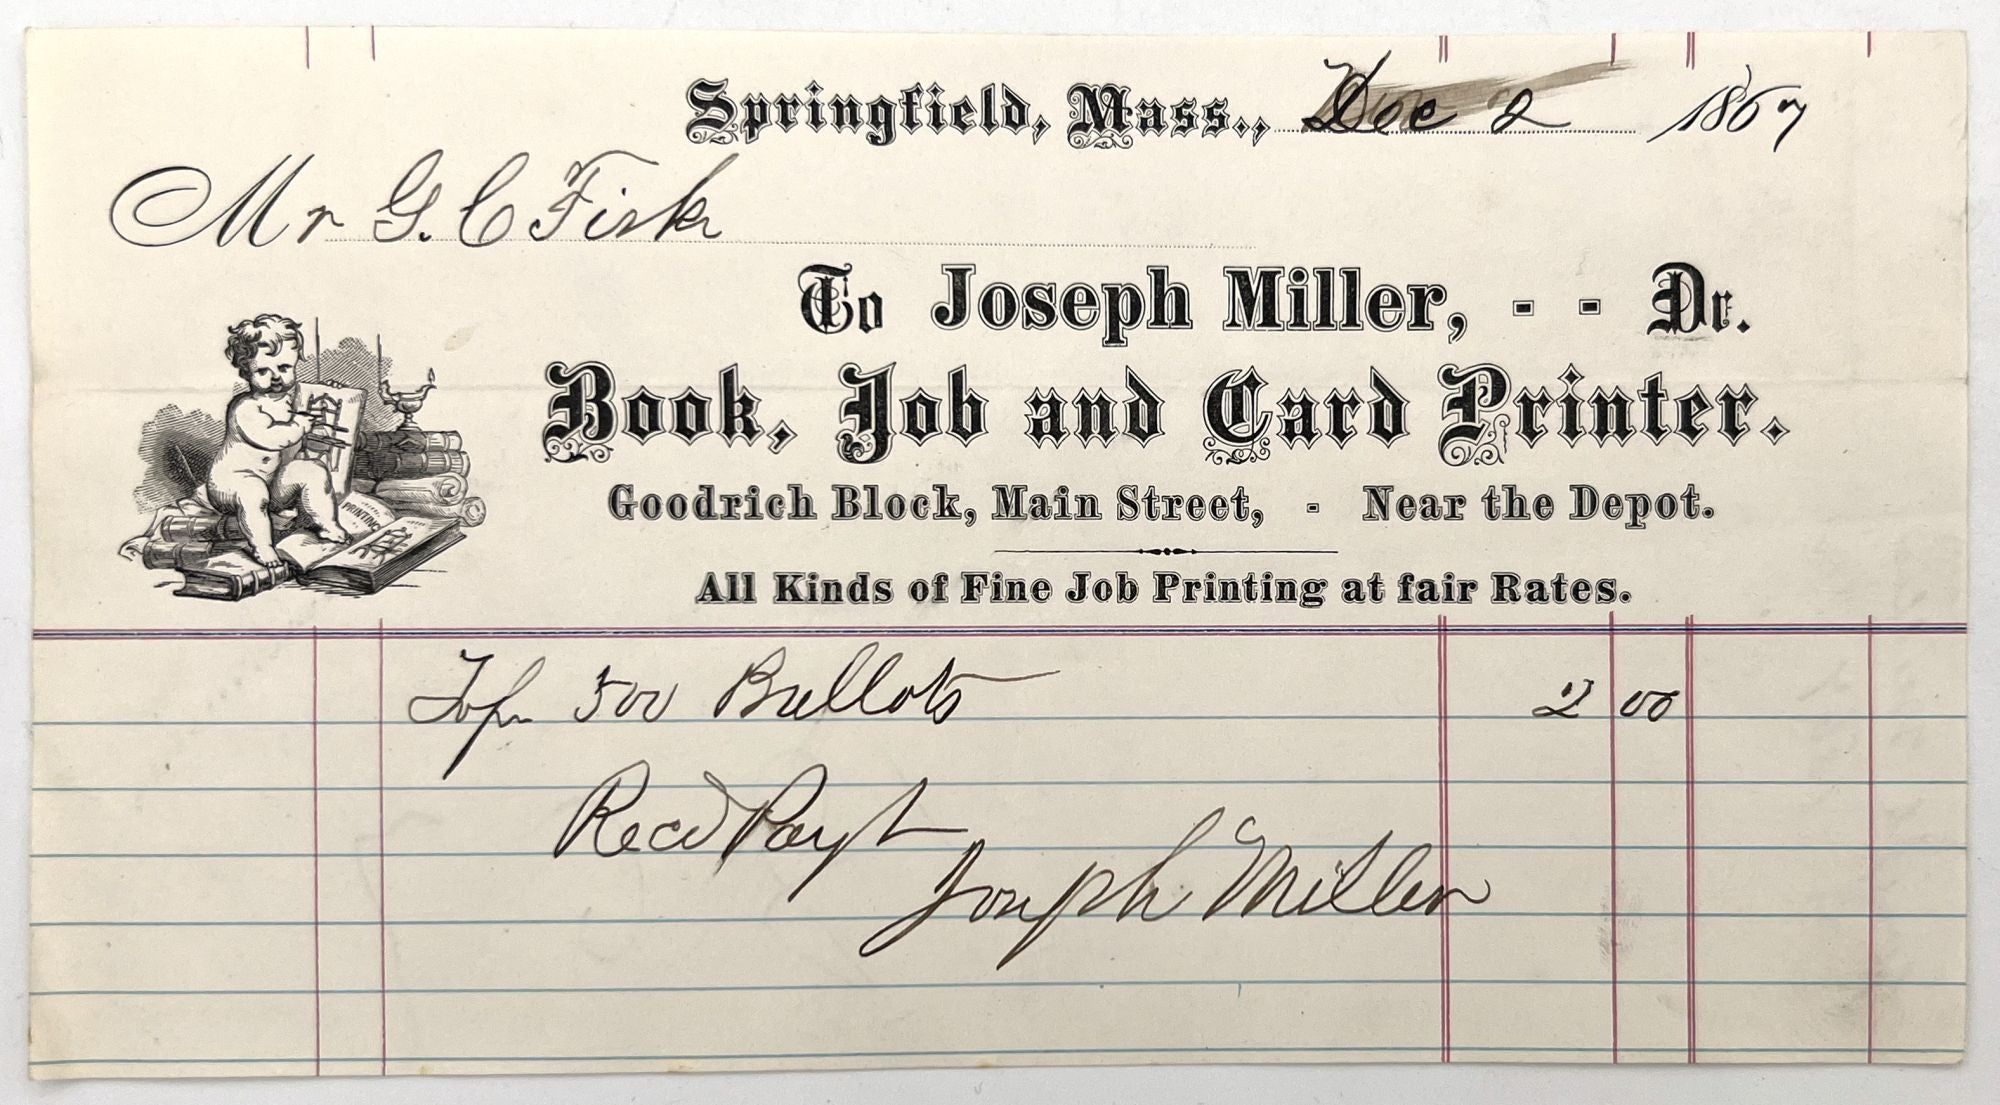 Springfield, Mass., Dec 2 1867
Mr G. C Fisk
To Joseph Miller, - - Dr.
Book, Job and Card Printer.
PRINTING
Goodrich Block, Main Street, - Near the Depot.
All Kinds of Fine Job Printing at fair Rates.
500 Ballots 2 00
Recd Payt
Joseph Miller